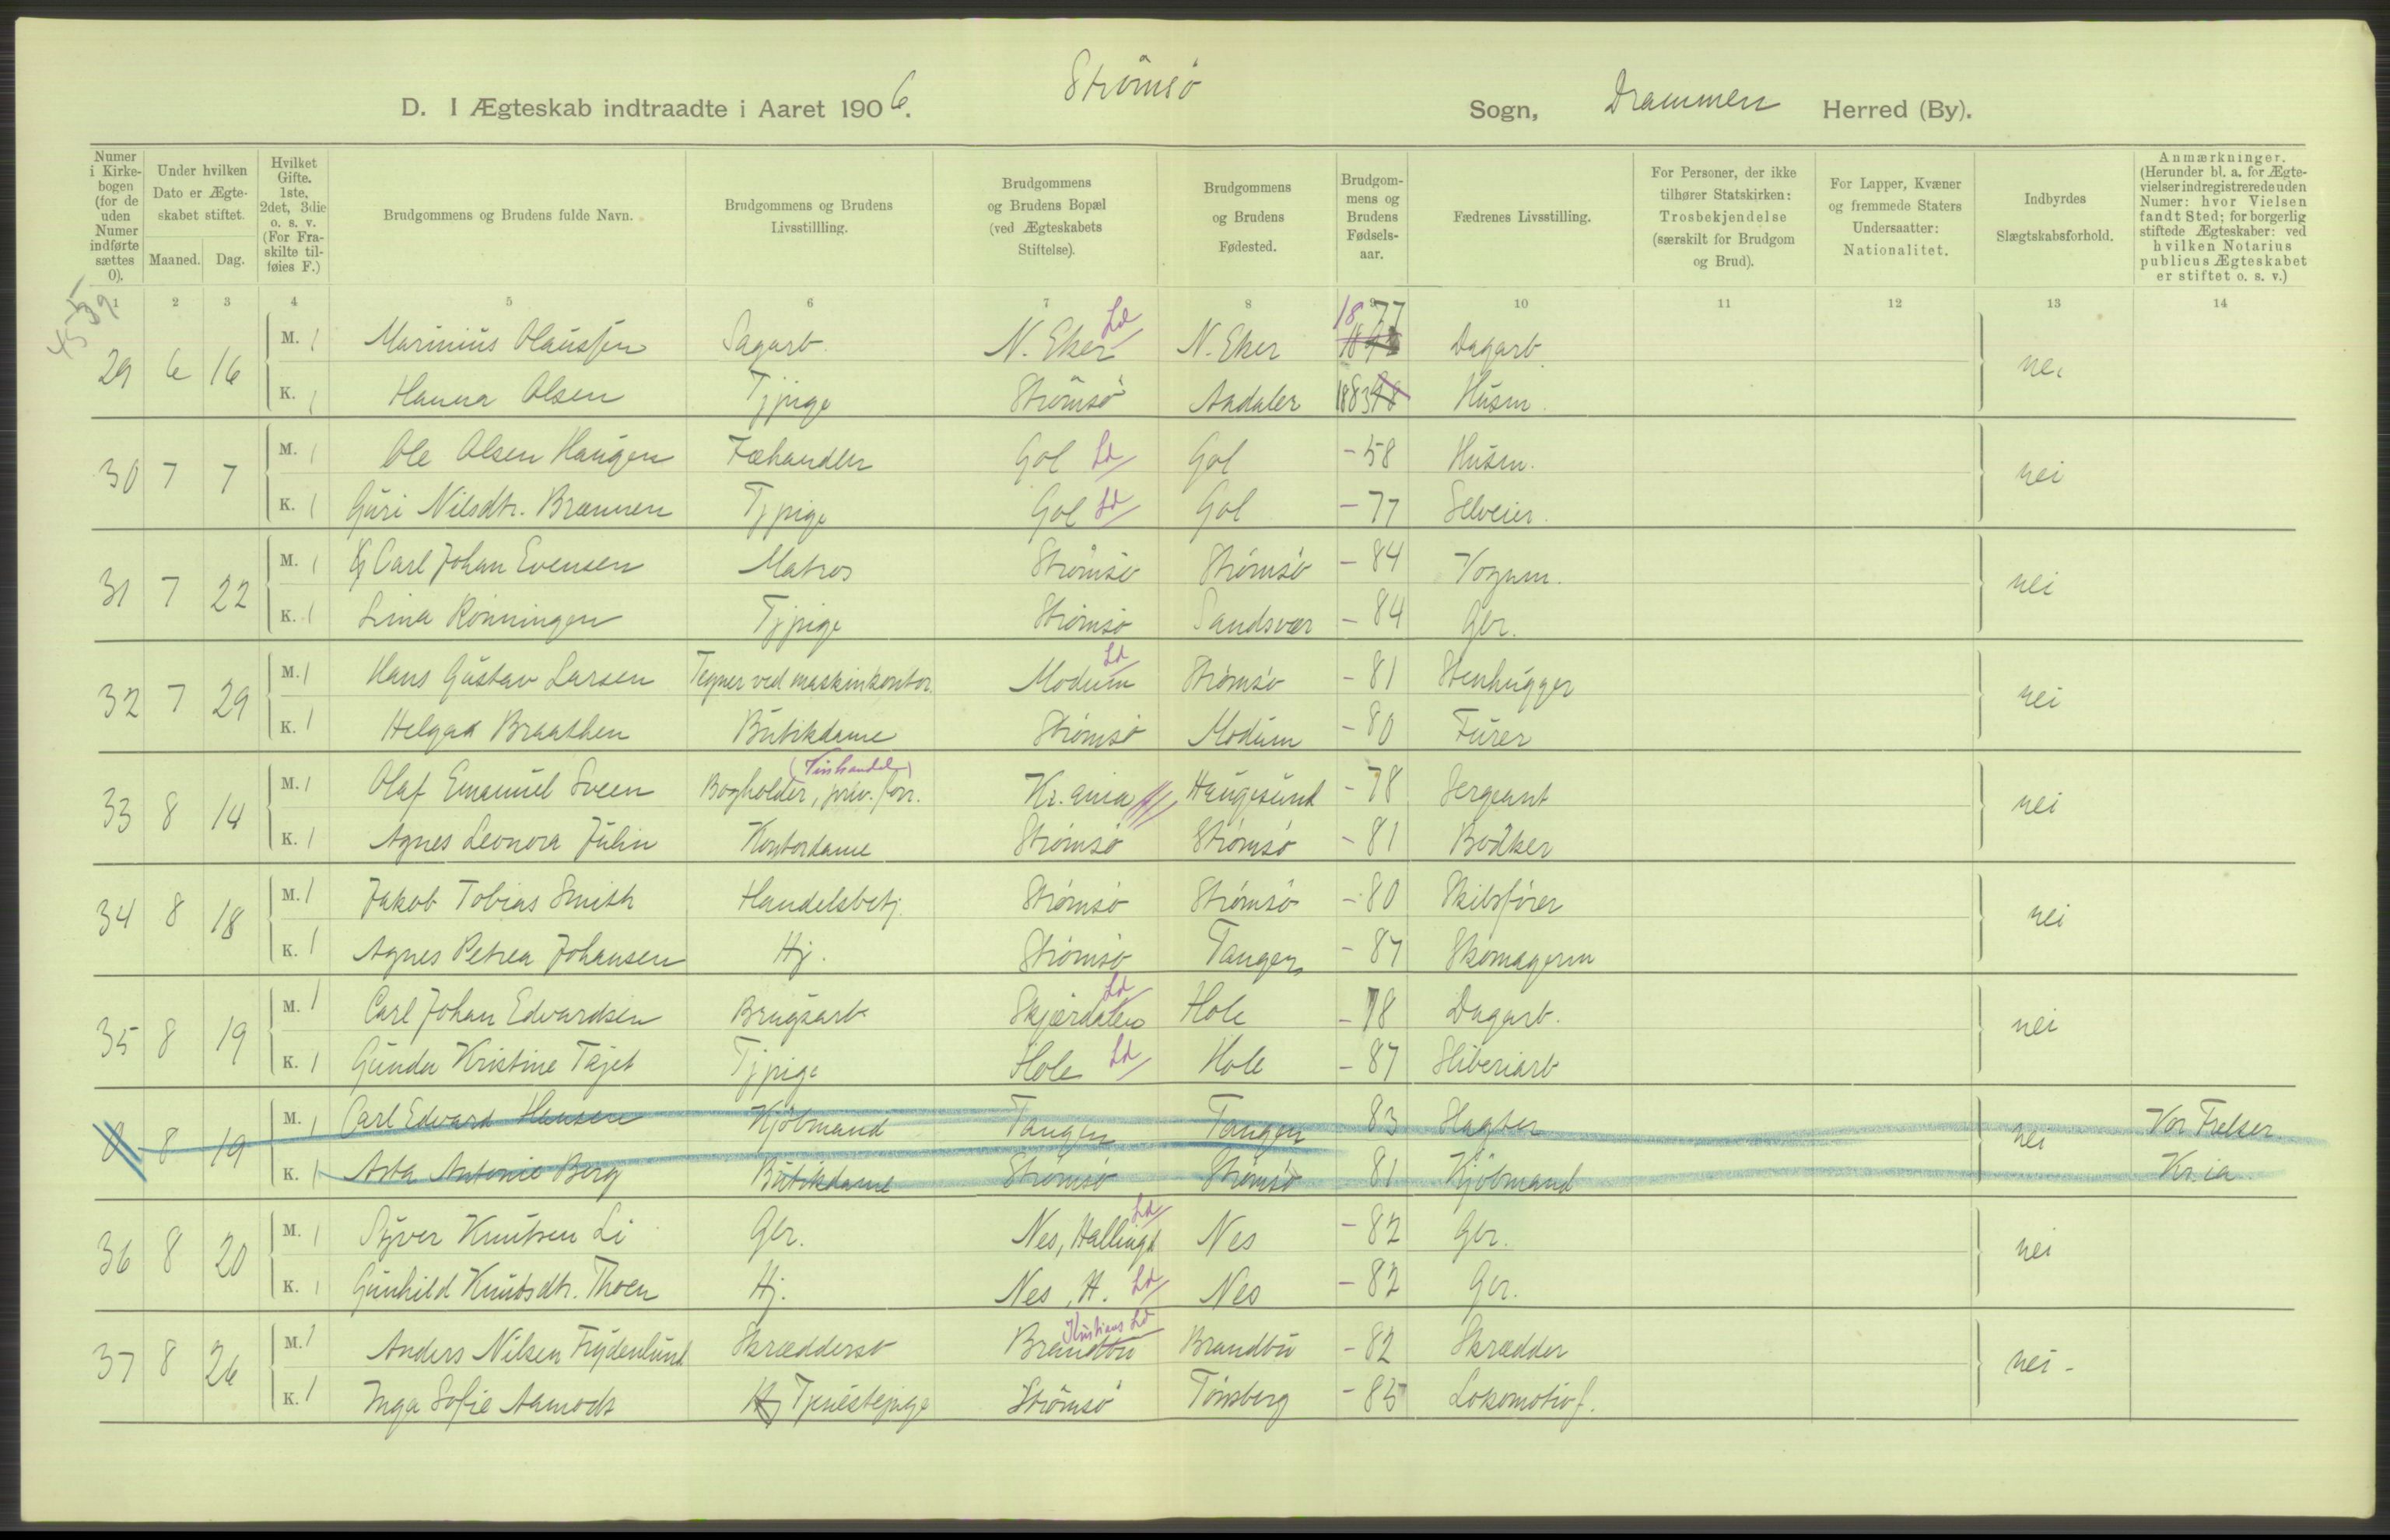 Strømsø
D. I Ægteskab indtraadte i Aaret 1906. Sogn, Drammen Herred (By).
Numer i Kirkebogen (for de uden Numer indførte sættes 0).
Under hvilken Dato er Ægteskabet stiftet.
Maaned. Dag.
Hvilket Gifte. 1ste, 2det, 3die o. s. v. (For Fraskilte tilføies F.)
Brudgommens og Brudens fulde Navn.
Brudgommens og Brudens Livsstillling.
Brudgommens og Brudens Bopæl (ved Ægteskabets Stiftelse).
Brudgommens og Brudens Fødested.
Brudgommens og Brudens Fødselsaar.
Fædrenes Livsstilling.
For Personer, der ikke tilhører Statskirken: Trosbekjendelse (særskilt for Brudgom og Brud).
For Lapper, Kvæner og fremmede Staters Undersaatter: Nationalitet.
Indbyrdes Slægtskabsforhold.
Anmærkninger. (Herunder bl. a. for Ægtevielser indregistrerede uden Numer: hvor Vielsen fandt Sted; for borgerlig stiftede Ægteskaber: ved hvilken Notarius publicus Ægteskabet er stiftet o. s. v.)
1 2 3 4 5 6 7 8 9 10 11 12 13 14
29 6 16 M. 1 Marinius Olaussen Sagarb. N. Eker Ld N. Eker 1877 Dagarb. nei
K. 1 Hanna Olsen Tjpige Strømsø Aadalen 1883 Husm.
30 7 7 M. 1 Ole Olsen Haugen Fæhandler Gol Ld Gol - 58 Husm. nei
K. 1 Guri Nilsdtr. Brænnen Tjpige Gol Ld Gol - 77 Selveier.
31 7 22 M. 1 Carl Johan Evensen Matros Strømsø Strømsø - 84 Vognm. nei
K. 1 Lina Rønningen Tjpige Strømsø Sandsvær - 84 Gbr.
32 7 29 M. 1 Hans Gustav Larsen Tegner ved maskinkontor. Modum Ld Strømsø - 81 Stenhugger nei
K. 1 Helga Braathen Butikdame Strømsø Modum - 80 Furer
(Vinhandel)
33 8 14 M. 1 Olaf Emanuel Sveen Bogholder, priv. forr. Kr.ania Haugesund - 78 Sergeant nei
K. 1 Agnes Leonora Julin Kontordame Strømsø Strømsø - 81 Bødker
34 8 18 M. 1 Jakob Tobias Smith Handelsbetj. Strømsø Strømsø - 80 Skibsfører nei
K. 1 Agnes Petrea Johansen Hj. Strømsø Tangen - 87 Skomagerm
35 8 19 M. 1 Carl Johan Edvardsen Brugsarb Skjærdalen Ld Hole - 78 Dagarb. nei
K. 1 Gunda Kristine Tajet Tjpige Hole Ld Hole - 87 Sliberiarb
0 8 19 M. 1 Carl Edvard Hansen Kjøbmand Tangen Tangen 83 Slagter nei Vor Frelser
K. 1 Asta Antonie Berg Butikdame Strømsø Strømsø 81 Kjøbmand Kr.ia
36 8 20 M. 1 Syver Knutsen Li Gbr. Nes, Hallingd Ld Nes - 82 Gbr. nei
K. 1 Gunhild Knutsdtr. Thoen Hj. Nes, H. Ld Nes - 82 Gbr.
Kristians Ld
37 8 26 M. 1 Anders Nilsen Frydenlund Skræddersv Brandbu Brandbu - 82 Skrædder nei -
K. 1 Inga Sofie Aamodt Hj Tjenestepige Strømsø Tønsberg - 85 Lokomotivf.